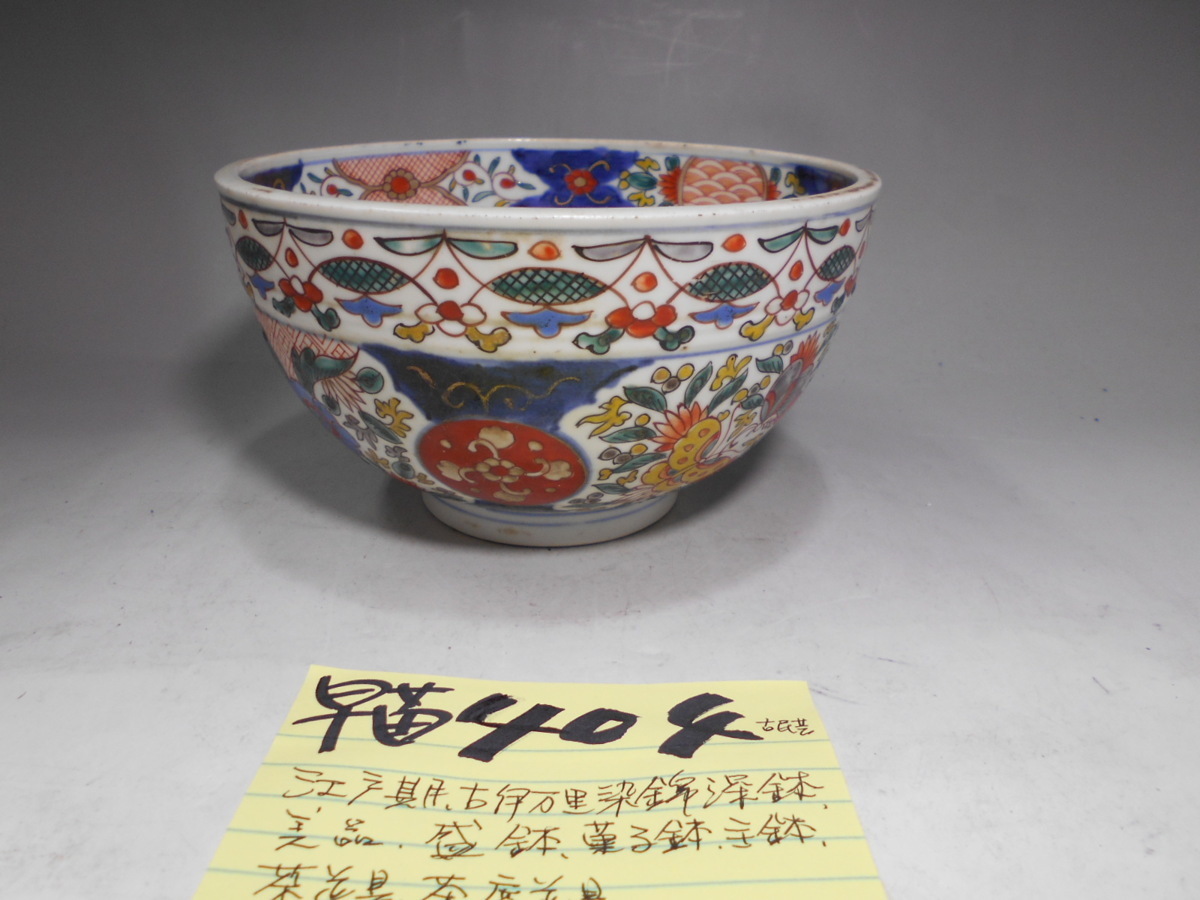 早苗404 古民芸
江戸期、古伊万里染錦深鉢、
美品、盛鉢、菓子鉢、主鉢、
茶道具、茶席道具